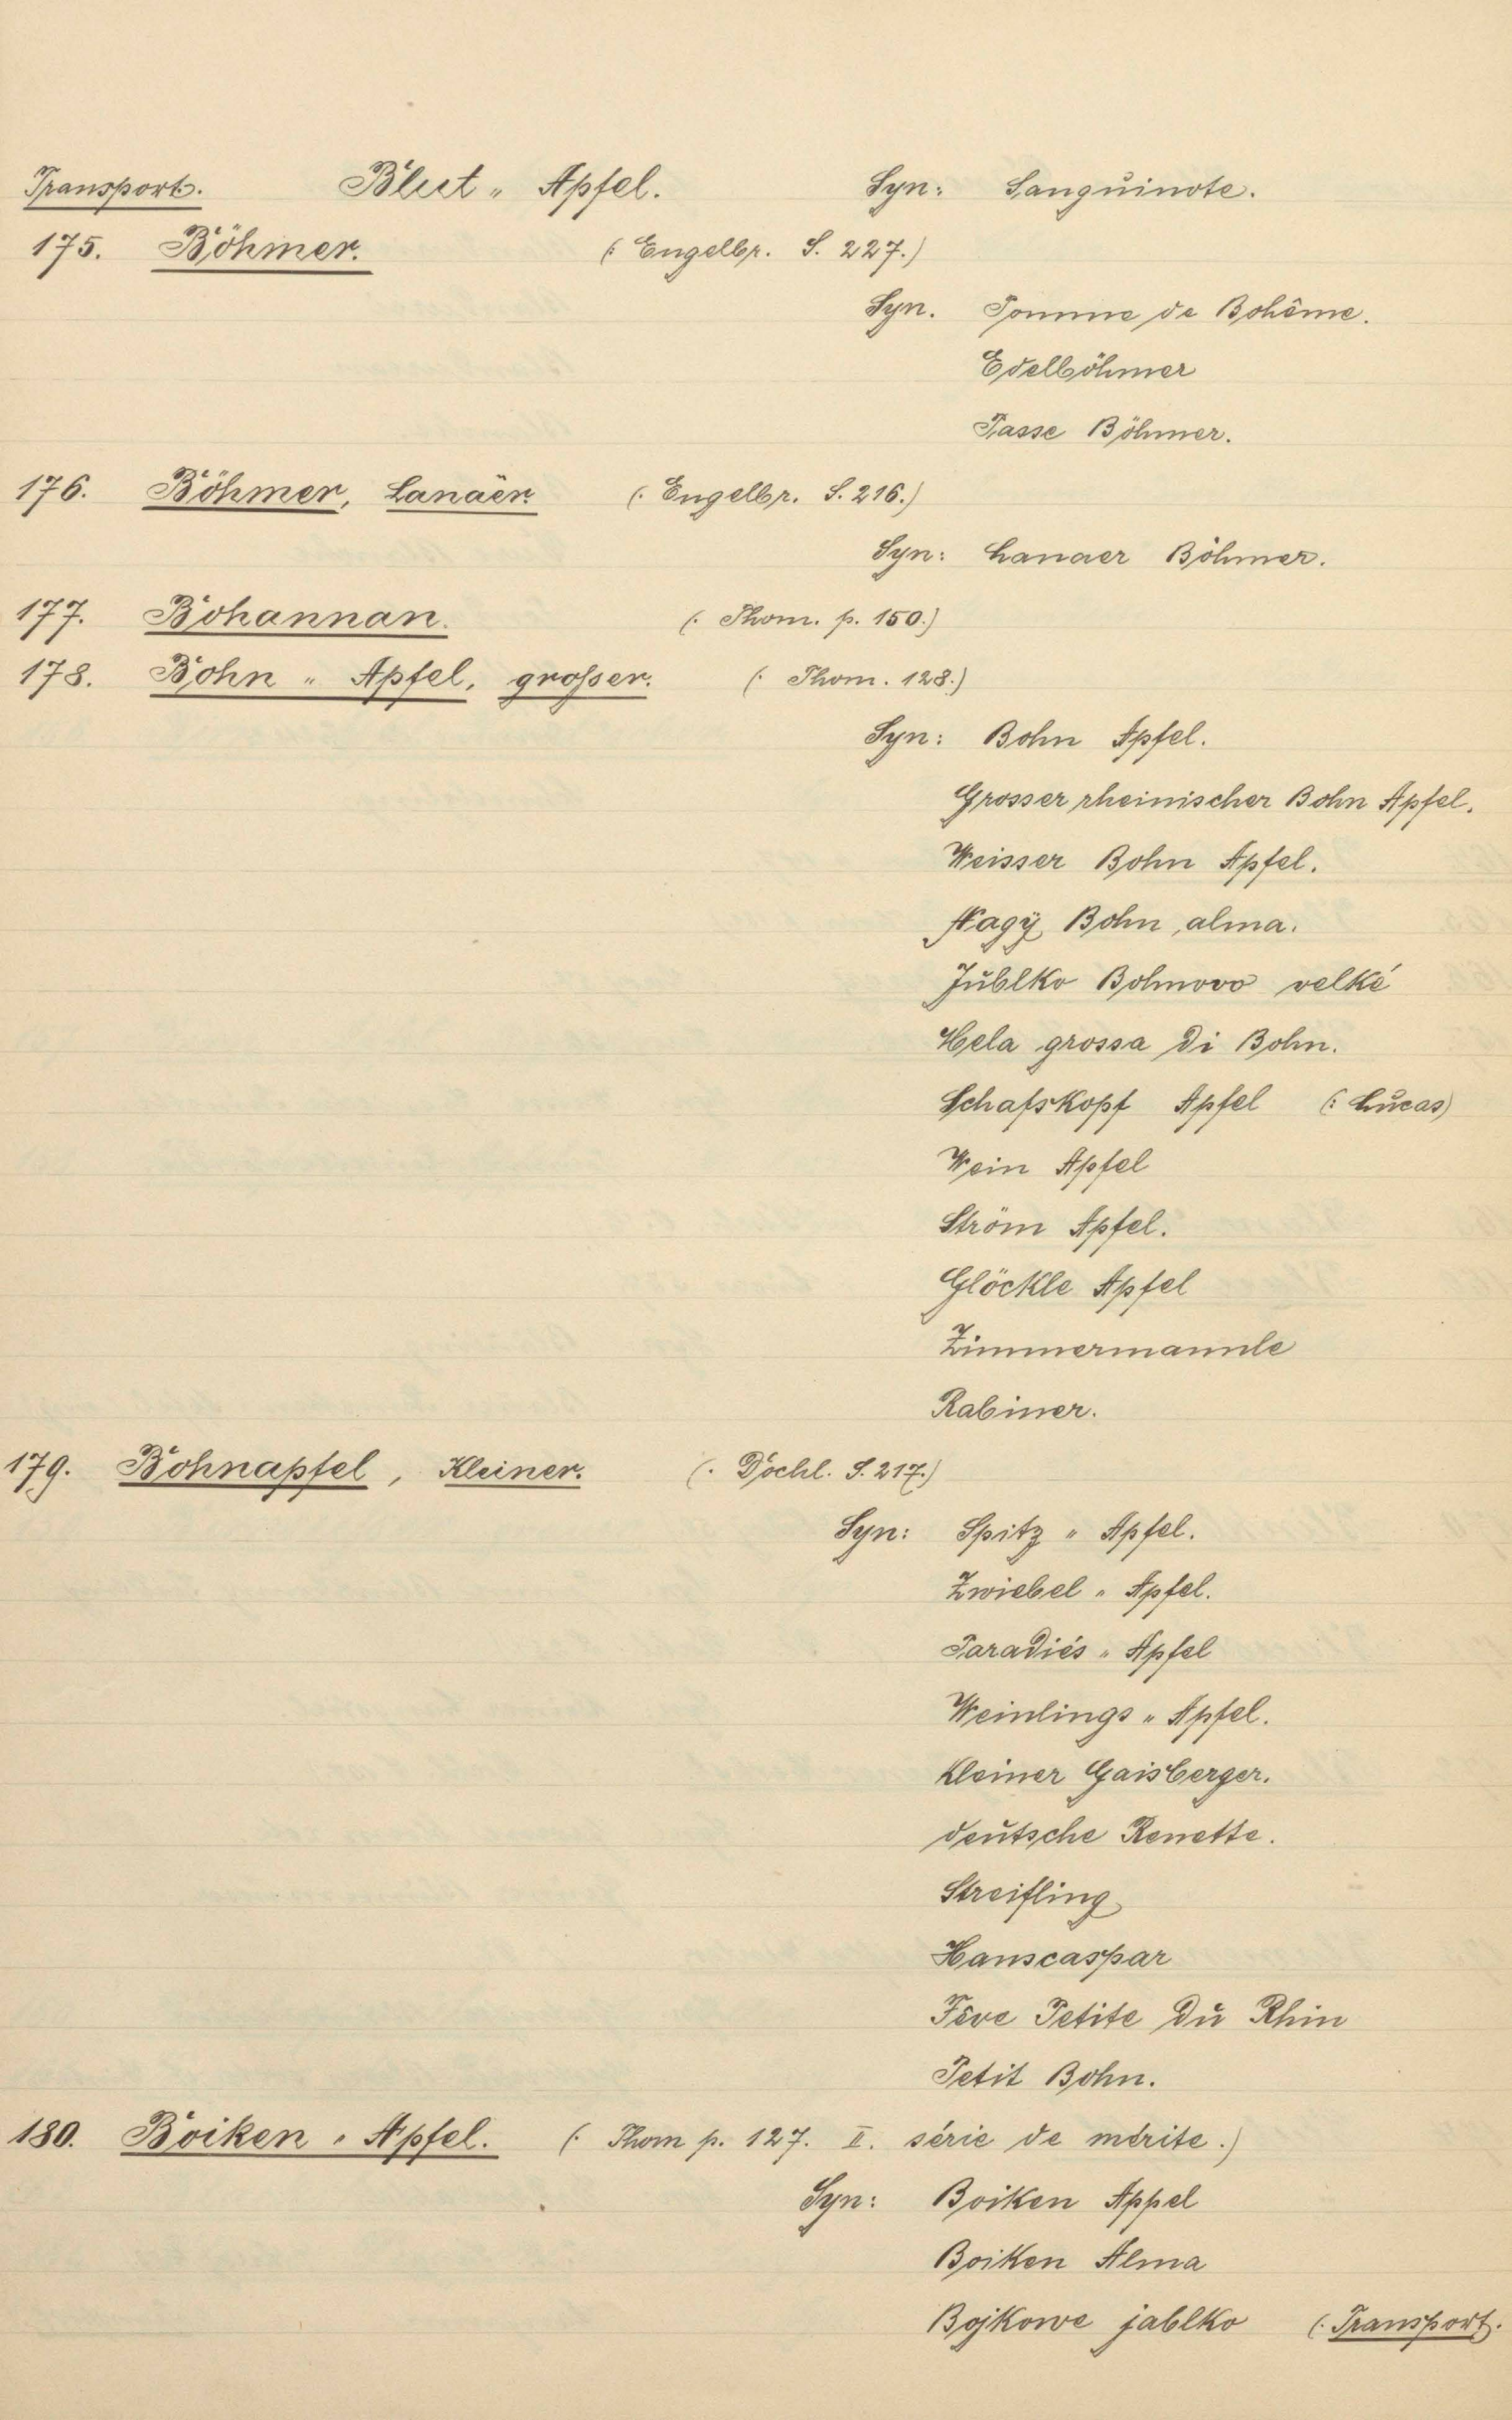 Transport. Blut „ Apfel. Syn: Sanguinote.
175. Böhmer. (: Engelbr. S. 227.)
Syn. Pomme de Bohême.
Edelböhmer
Passe Böhmer.
176. Böhmer, Lanaër. (: Engelbr. S. 216.)
Syn: Lanaer Böhmer.
177. Bohannan. (: Thom. p. 150.)
178. Bohn „ Apfel, großer. (: Thom. 128.)
Syn: Bohn Apfel.
Grosser rheinischer Bohn Apfel.
Weisser Bohn Apfel.
Nagÿ Bohn, alma.
Jŭblko Bohnovo velké
Mela grossa di Bohn.
Schafskopf Apfel (: Lŭcas)
Wein Apfel
Ström Apfel.
Glöckle Apfel
Zimmermannle
Rabiner.
179. Bohnapfel, Kleiner. (: Dochl. S. 217.)
Syn: Spitz „ Apfel.
Zwiebel „ Apfel.
Paradiés „ Apfel
Weinlings „ Apfel.
Kleiner Gaisberger.
deŭtsche Renette.
Streifling
Hanscaspar
Fève Petite dŭ Rhin
Petit Bohn.
180. Boiken „ Apfel. (: Thom p. 127. II. série de mérite.)
Syn: Boiken Appel
Boiken Alma
Bojkowe jablko (: Transport.